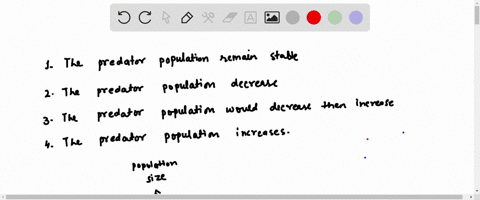 1. The predator population remain stable
2. The predator population decrease
3. The predator population would decrease then increase
4. The predator population increases.
population
size